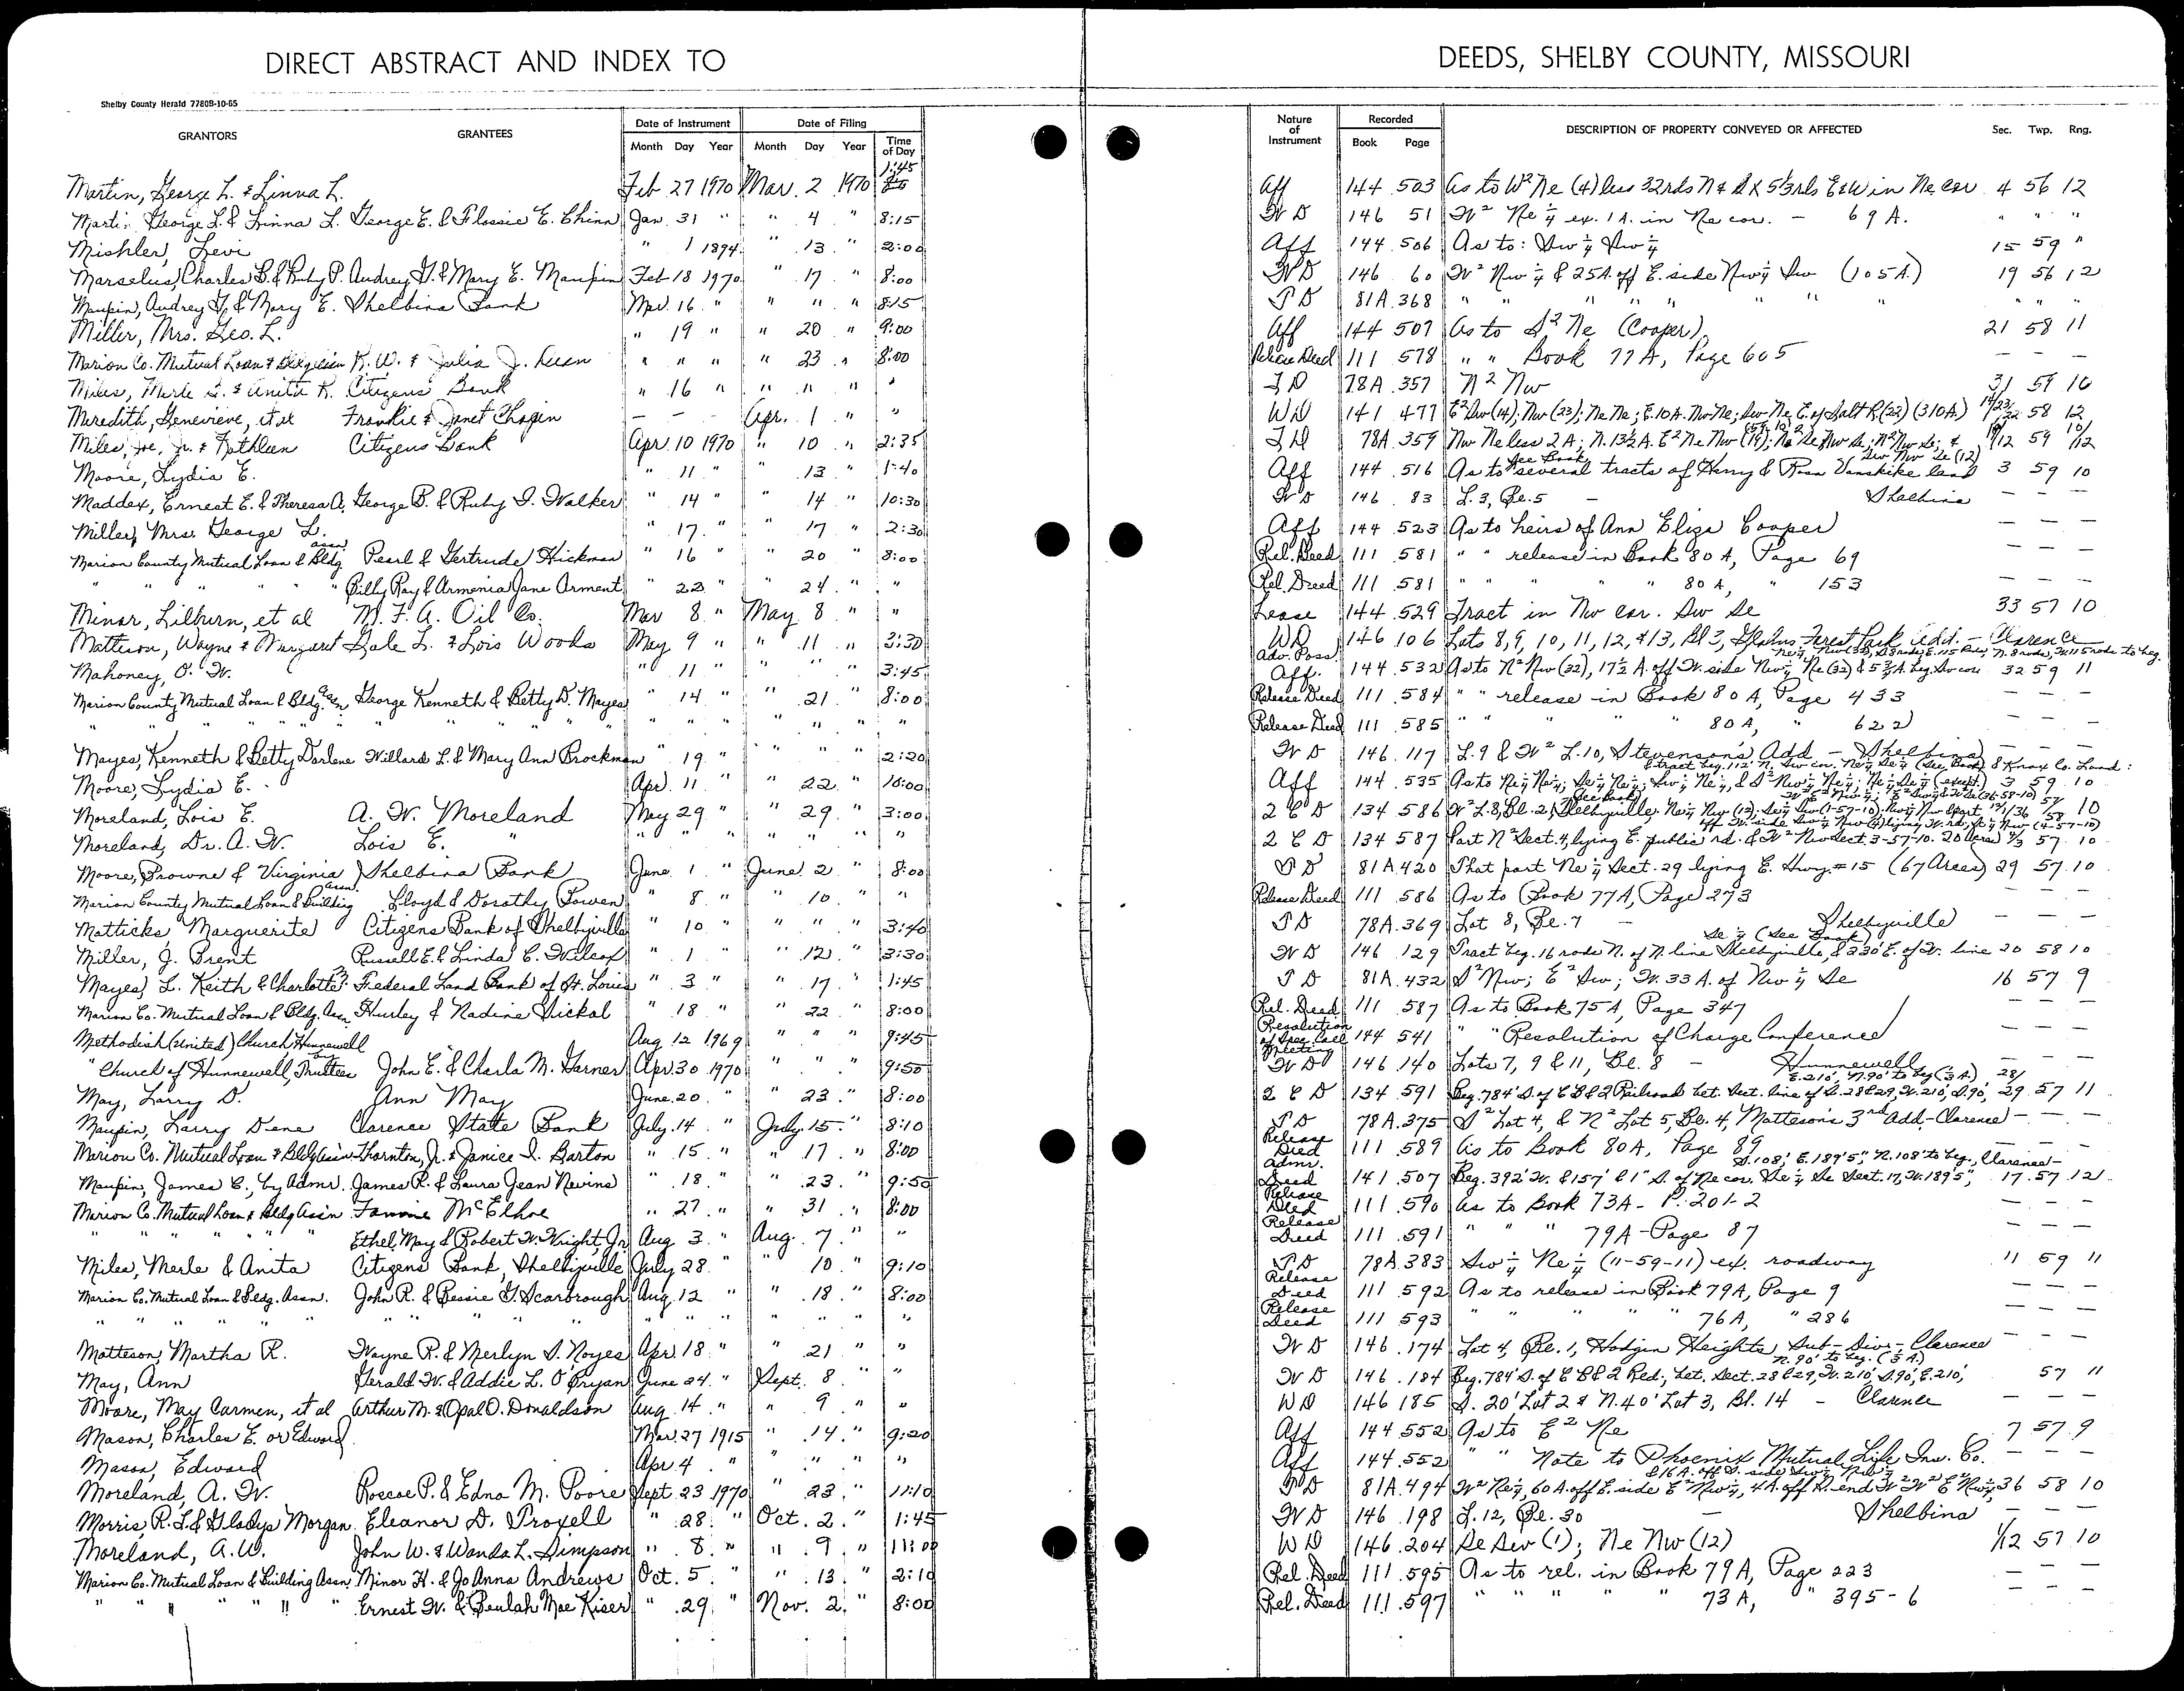 DIRECT ABSTRACT AND INDEX TO DEEDS, SHELBY COUNTY, MISSOURI
Shelby County Herald 7780B-10-65
GRANTORS GRANTEES Date of Instrument Date of Filing Nature of Instrument Recorded DESCRIPTION OF PROPERTY CONVEYED OR AFFECTED Sec. Twp. Rng.
Month Day Year Month Day Year Time of Day Book Page
Martin, George L. & Linna L. Feb 27 1970 Mar. 2 1970 1:45 Aff 144 503 As to W² Ne (4) less 32rds N & S X 5⅓rds E&W in Ne cor 4 56 12
Martin George L. & Linna L. George E. & Flossie E. Chinn Jan. 31 " " 4 " 8:15 W D 146 51 W² Ne ¼ ex. 1 A. in Ne cor. - 69 A. " " "
Mishler, Levi " 1 1894 " 13 " 2:00 Aff 144 506 As to: Sw ¼ Sw ¼ 15 59 "
Marselus, Charles B. & Ruby P. Audrey G. & Mary E. Maupin Feb 18 1970 " 17 " 8:00 W D 146 60 W² Nw ¼ & 25A. off E. side Nw ¼ Sw (105 A.) 19 56 12
Maupin, Audrey G. & Mary E. Shelbina Bank Mar. 16 " " " " 8:15 T D 81A 368 " " " " " " " " " "
Miller, Mrs. Geo. L. " 19 " " 20 " 9:00 Aff 144 507 As to S² Ne (Cooper) 21 58 11
Marion Co. Mutual Loan & Bldg Assn R. W. & Julia J. " " " " 23 " 8:00 Release Deed 111 578 " " Book 77A, Page 605 — — —
Miles, Merle S. & Anita R. Citizens Bank " 16 " " " " " T D 78A 357 N² Nw 31 59 10
Meredith, Genevieve, et al Frankie & Janet Chapin — — — Apr. 1 " " WD 141 477 E² Sw (14); Nw (23); Ne Ne; E.10A. Nw Ne; Sw Ne E. of Salt R. (22) (310A) 14/23/22 58 12
Miles, Joe, Jr. & Kathleen Citizens Bank Apr. 10 1970 " 10 " 2:35 T D 78A 359 Nw Ne less 2 A; N. 13½ A. E² Ne Nw 59
Moore, Lydia E. " 11 " " 13 " 1:40 Aff 144 516 As to see Book several tracts of Henry & Rosa Vanskike land 3 59 10
Maddex, Ernest E. & Theresa A. George B. & Ruby I. Walker " 14 " " 14 " 10:30 W D 146 83 L. 3, Bl. 5 - Shelbina — — —
Miller, Mrs. George L. " 17 " " 17 " 2:30 Aff 144 523 As to heirs of Ann Eliza Cooper — — —
Marion County Mutual Loan & Bldg assn Pearl & Gertrude Hickman " 16 " " 20 " 8:00 Rel. Deed 111 581 " " release in Book 80 A, Page 69 — — —
" " " " Billy Ray & Armenia Jane Arment " 22 " " 24 " " Rel. Deed 111 581 " " " " 80 A, " 153 — — —
Minor, Lilburn, et al M. F. A. Oil Co. Mar 8 " May 8 " " Lease 144 529 Tract in Nw cor. Sw Se 33 57 10
Matteson, Wayne & Margaret Gale L. & Lois Woods May 9 " " 11 " 3:30 WD 146 106 Lots 8, 9, 10, 11, 12, & 13, Bl 3, Forest Park Add. - Clarence
Mahoney, O. W. " 11 " " " " 3:45 Adv. Poss. Aff. 144 532 As to N² Nw (32), 17½ A. off W. side Nw ¼ Ne (32) 32 59 11
Marion County Mutual Loan & Bldg. Assn George Kenneth & Betty D. Mayes " 14 " " 21 " 8:00 Release Deed 111 584 " " release in Book 80 A, Page 433 — — —
" " " " " " " " " " " " Release Deed 111 585 " " " " 80 A, " 622 — — —
Mayes, Kenneth & Betty Darlene Willard L. & Mary Ann Brockman " 19 " " " " 2:20 W D 146 117 L. 9 & W² L. 10, Stevenson's Add - Shelbina — — —
Moore, Lydia E. Apr. 11 " " 22 " 10:00 Aff 144 535 3 59 10
Moreland, Lois E. A. W. Moreland May 29 " " 29 " 3:00 2 C D 134 586 W² L. 8, Bl. 2, Shelbyville.
Moreland, Dr. A. W. Lois E. " " " " " " " " 2 C D 134 587 Part N² Sect. 4, lying E. public rd. & W² Nw Sect. 3-57-10. 4/3 57 10
Moore, Browne & Virginia Shelbina Bank June 1 " June 2 " 8:00 T D 81A 420 That part Ne ¼ Sect. 29 lying E. Hwy. #15 (67 Acres) 29 57 10
Marion County Mutual Loan & Building Assn. Lloyd & Dorothy Bowen " 8 " " 10 " " Release Deed 111 586 As to Book 77A, Page 273 — — —
Matticks Marguerite Citizens Bank of Shelbyville " 10 " " " " 3:40 T D 78A 369 Lot 8, Bl. 7 - Shelbyville — — —
Miller, J. Brent Russell E. & Linda C. Wilcox " 1 " " 12 " 3:30 W D 146 129 Tract beg. 16 rods N. of N. line Shelbyville, & 330' E. of W. line Se ¼ (see Book) 20 58 10
Mayes, L. Keith & Charlotte Federal Land Bank of St. Louis " 3 " " 17 " 1:45 T D 81A 432 S² Nw; E² Sw; W. 33 A. of Nw ¼ Se 16 57 9
Marion Co. Mutual Loan & Bldg. Assn Hurley & Nadine Pickal " 18 " " 22 " 8:00 Rel. Deed 111 587 As to Book 75A, Page 347 — — —
Methodist (United) Church Hunnewell Aug 12 1969 " " " 9:45 Resolution of Spec. Call Meeting 144 541 " " Resolution of Charge Conference — — —
" Church of Hunnewell, Trustees John E. & Charla M. Garner Apr. 30 1970 " " " 9:50 W D 146 140 Lots 7, 9 & 11, Bl. 8 - Hunnewell
May, Larry D. Ann May June 20 " " 23 " 8:00 2 C D 134 591 Beg. 784' S. of C B & Q Railroad bet. Sect. line of S. 28 & 29, W. 210', S. 90', E. 210', N. 90' to beg (½ A.) 28/29 57 11
Maupin, Larry Dene Clarence State Bank July 14 " July 15 " 8:10 T D 78A 375 S² Lot 4, & N² Lot 5, Bl. 4, Matteson's 3rd Add. - Clarence — — —
Marion Co. Mutual Loan & Bldg Ass'n Thornton, Jr. & Janice I. Barton " 15 " " 17 " 8:00 Release Deed 111 589 As to Book 80A, Page 89 — — —
Maupin, James C., by Admr. James R. & Laura Jean Nevins " 18 " " 23 " 9:50 Admr. Deed 141 507 Beg. 392' W. & 157' & 1" S. of Ne cor. Se ¼ Se Sect. 17, W. 189'5", S. 108', E. 189'5", N. 108' to beg., Clarence - 17 57 12
Marion Co. Mutual Loan & Bldg Ass'n Fannie McElhoe " 27 " " 31 " 8:00 Release Deed 111 590 As to Book 73A - P. 201-2 — — —
" " " " " Ethel May & Robert W. Wright, Jr. Aug 3 " Aug. 7 " " Release Deed 111 591 " " " 79A - Page 87 — — —
Miles, Merle & Anita Citizens Bank, Shelbyville July 28 " " 10 " 9:10 T D 78A 383 Sw ¼ Ne ¼ (11-59-11) ex. roadway 11 59 11
Marion Co. Mutual Loan & Bldg. Assn. John R. & Bessie G. Scarbrough Aug. 12 " " 18 " 8:00 Release Deed 111 592 As to release in Book 79A, Page 9 — — —
" " " " " " " " " " " " " " Release Deed 111 593 " " " " 76A, " 286 — — —
Matteson, Martha R. Wayne R. & Merlyn S. Noyes Apr. 18 " " 21 " " W D 146 174 Lot 4, Bl. 1, Hodgin Heights Sub-Div. - Clarence — — —
May, Ann Gerald W. & Addie L. O'Bryan June 24 " Sept. 8 " " W D 146 184 Beg. 784' S. of C B & Q Rd., bet. Sect. 28 & 29, W. 210', S. 90', E. 210', N. 90' to beg. (½ A) 57 11
Moore, May Carmen, et al Arthur M. & Opal O. Donaldson Aug. 14 " " 9 " " WD 146 185 S. 20' Lot 2 & N. 40' Lot 3, Bl. 14 - Clarence
Mason, Charles E. or Edward Mar. 27 1915 " 14 " 9:20 Aff 144 552 As to E² Ne 7 57 9
Mason, Edward Apr 4 " " " " " Aff 144 552 " " Note to Phoenix Mutual Life Ins. Co. — — —
Moreland, A. W. Roscoe P. & Edna M. Poore Sept. 23 1970 " 23 " 11:10 W D 81A 494 W² Ne ¼, 60 A. off E. side E² Nw ¼, 4 A. off N. end W² W² E² Nw ¼, & 16 A. off S. side Sw ¼ Nw ¼ 36 58 10
Morris, R. L. & Gladys Morgan Eleanor D. Proxell " 28 " Oct. 2 " 1:45 W D 146 198 L. 12, Bl. 30 - Shelbina — — —
Moreland, A. W. John W. & Wanda L. Simpson " 8 " " 9 " 11:00 WD 146 204 Se Sw (1); Ne Nw (12) 1/12 57 10
Marion Co. Mutual Loan & Building Assn. Minor H. & Jo Anna Andrews Oct. 5 " " 13 " 2:10 Rel. Deed 111 595 As to rel. in Book 79A, Page 223 — — —
" " " " " " Ernest W. & Beulah Mae Kiser " 29 " Nov. 2 " 8:00 Rel. Deed 111 597 " " " " " 73 A, " 395-6 — — —